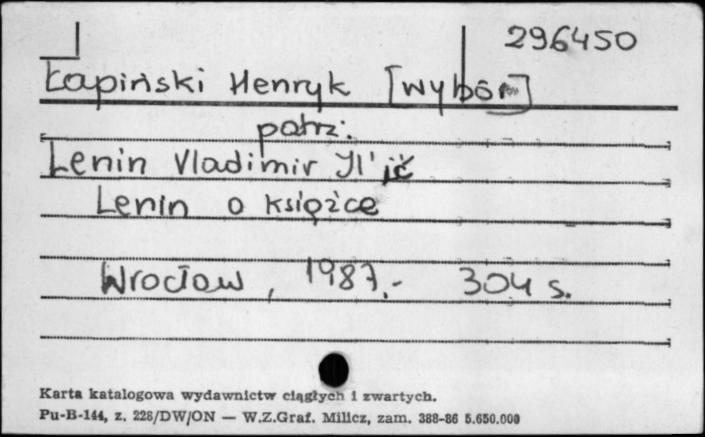 296450
Łapiński Henryk [wybór]
patrz:
Lenin Vladimir Il'ič
Lenin o książce
Wrocław, 1987.- 304 s.
Karta katalogowa wydawnictw ciągłych i zwartych.
Pu-B-144, z. 228/DW/ON — W.Z.Graf. Milicz, zam. 388-86 5.650.000